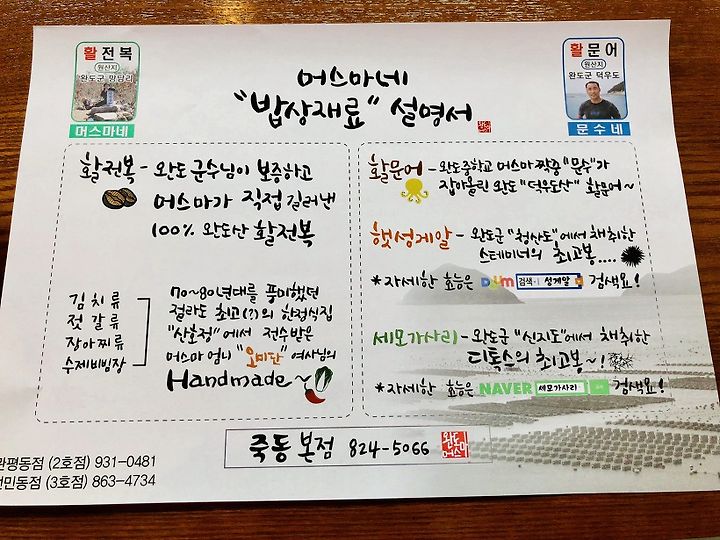 활전복
원산지
완도군 망남리
머스마네
머스마네
"밥상재료" 설명서
활문어
원산지
완도군 덕우도
문수네
활전복 - 완도군수님이 보증하고
머스마가 직접 길러낸
100% 완도산 활전복
김치류
젓갈류
장아찌류
수제비빔장
70~80년대를 풍미했던
절라도 최고(?)의 한정식집
"산호정"에서 전수받은
머스마 엄니 "오미단" 여사님의
Handmade~
활문어 - 완도중학교 머스마 짝중 "문수"가
잡아올린 완도 "덕우도산" 활문어~
햇성게알 - 완도군 "청산도"에서 채취한
스테미너의 최고봉....
*자세한 효능은 Daum 검색 성게알 검색요!
세모가사리 - 완도군 "신지도"에서 채취한
디톡스의 최고봉~!
*자세한 효능은 NAVER 세모가사리 검색요!
죽동 본점 824-5066 완도 머스마
관평동점 (2호점) 931-0481
전민동점 (3호점) 863-4734